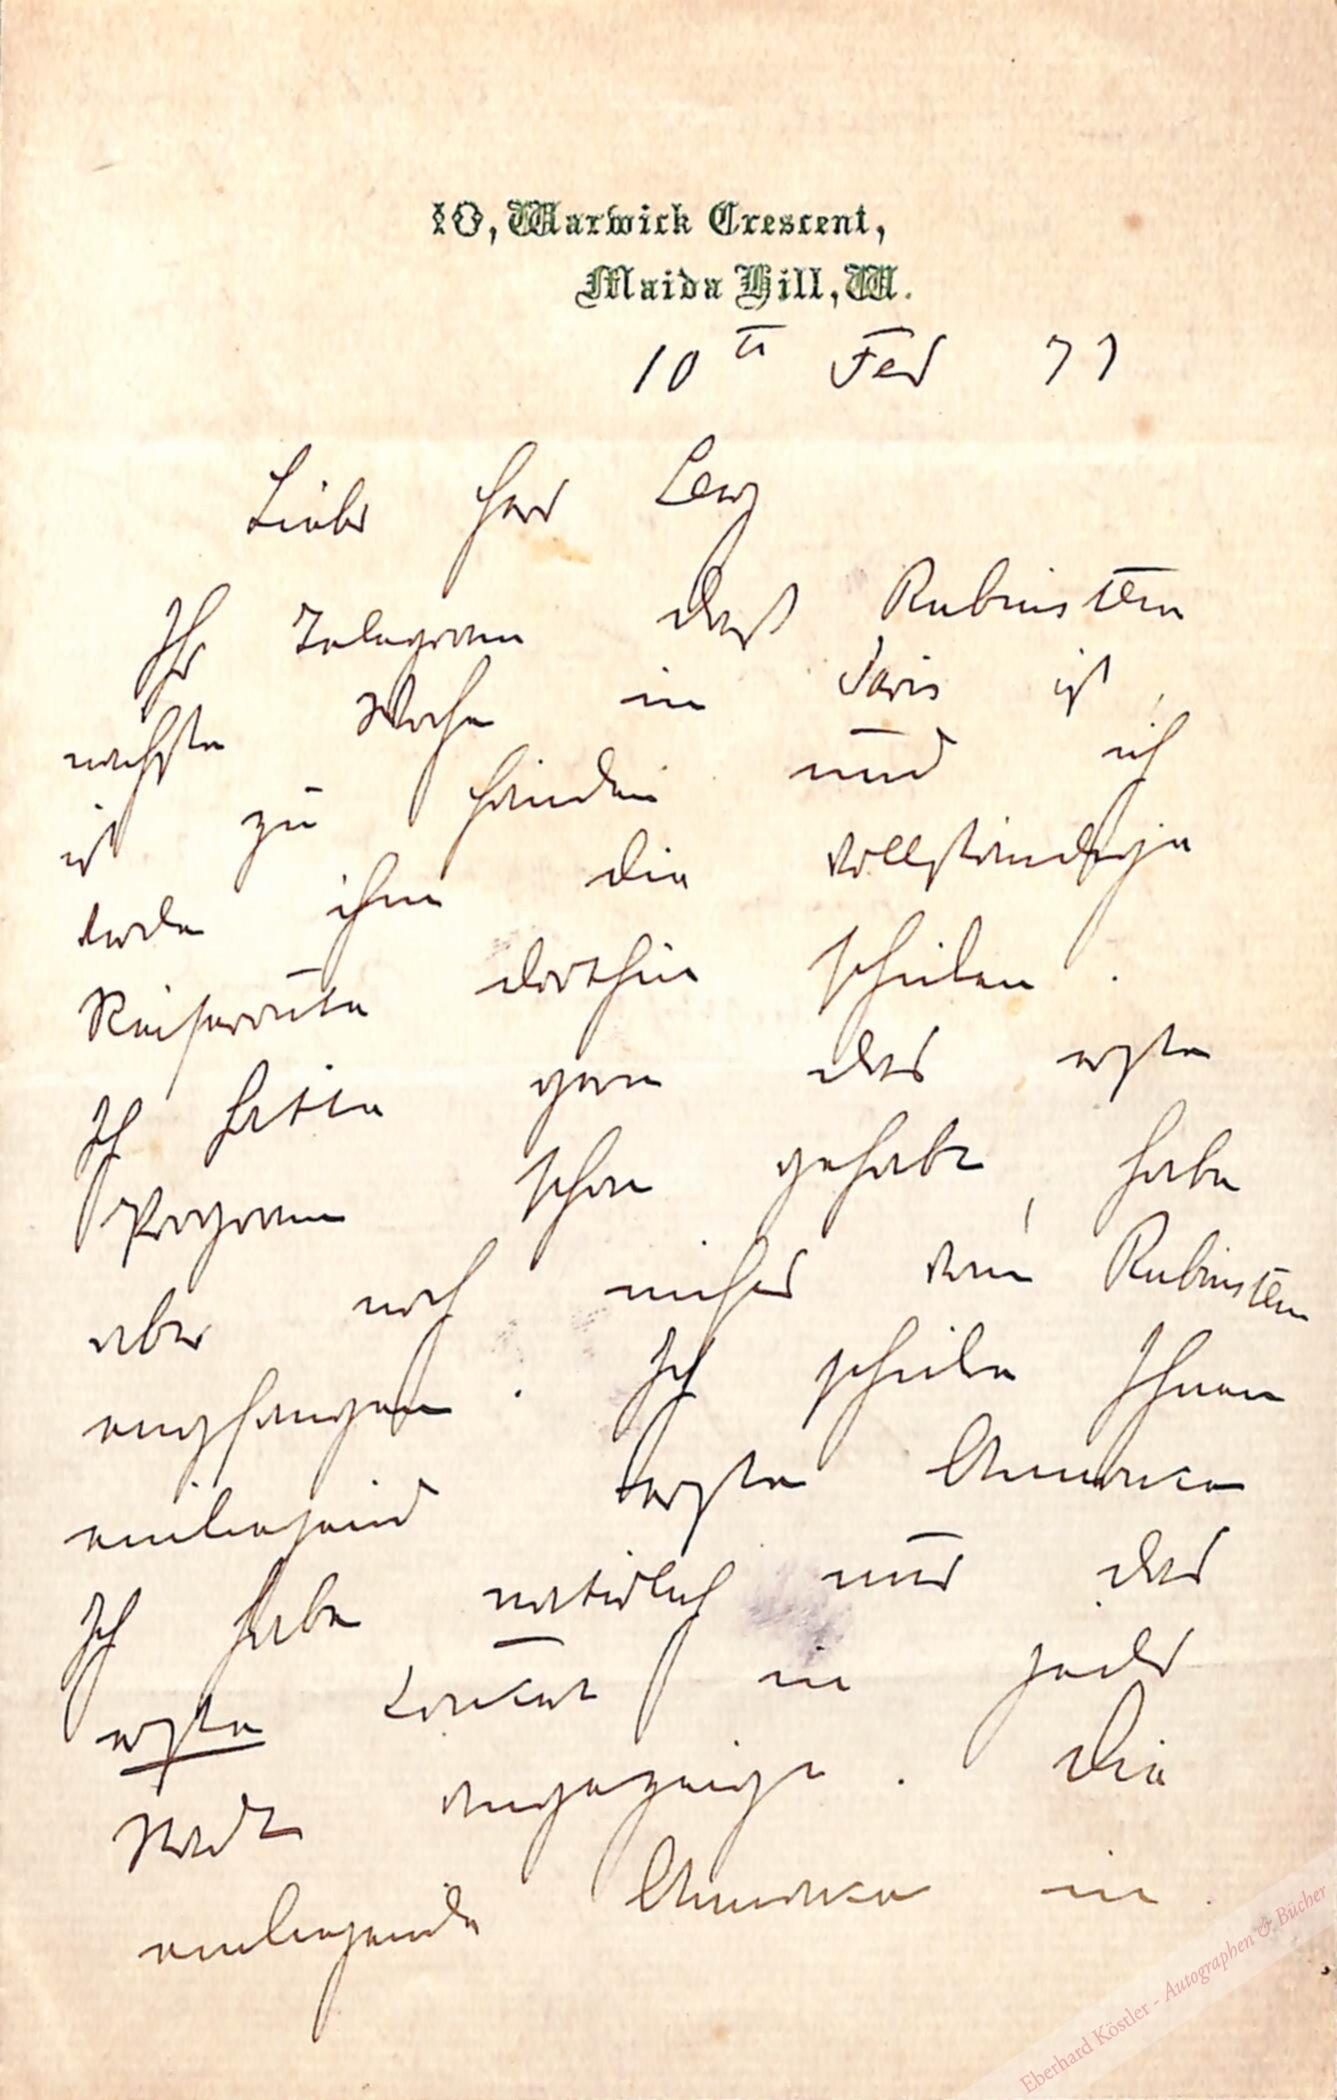 10, Warwick Crescent,
Maida Hill, W.
10th Feb 77
Lieber Herr Levy
Ihr Telegramm daß Rubinstein
nächste Woche in Paris ist,
ist zu Händen und ich
werde ihm die vollständige
Reiseroute dorthin schicken.
Ich hätte gern das erste
Programm schon gehabt, habe
aber noch nichts von Rubinstein
empfangen. Ich schicke Ihnen
einliegend erste Annonce
Ich habe natürlich nur das
erste Concert in jeder
Stadt angezeigt. Die
einliegende Annonce in
Eberhard Köstler - Autographen & Bücher